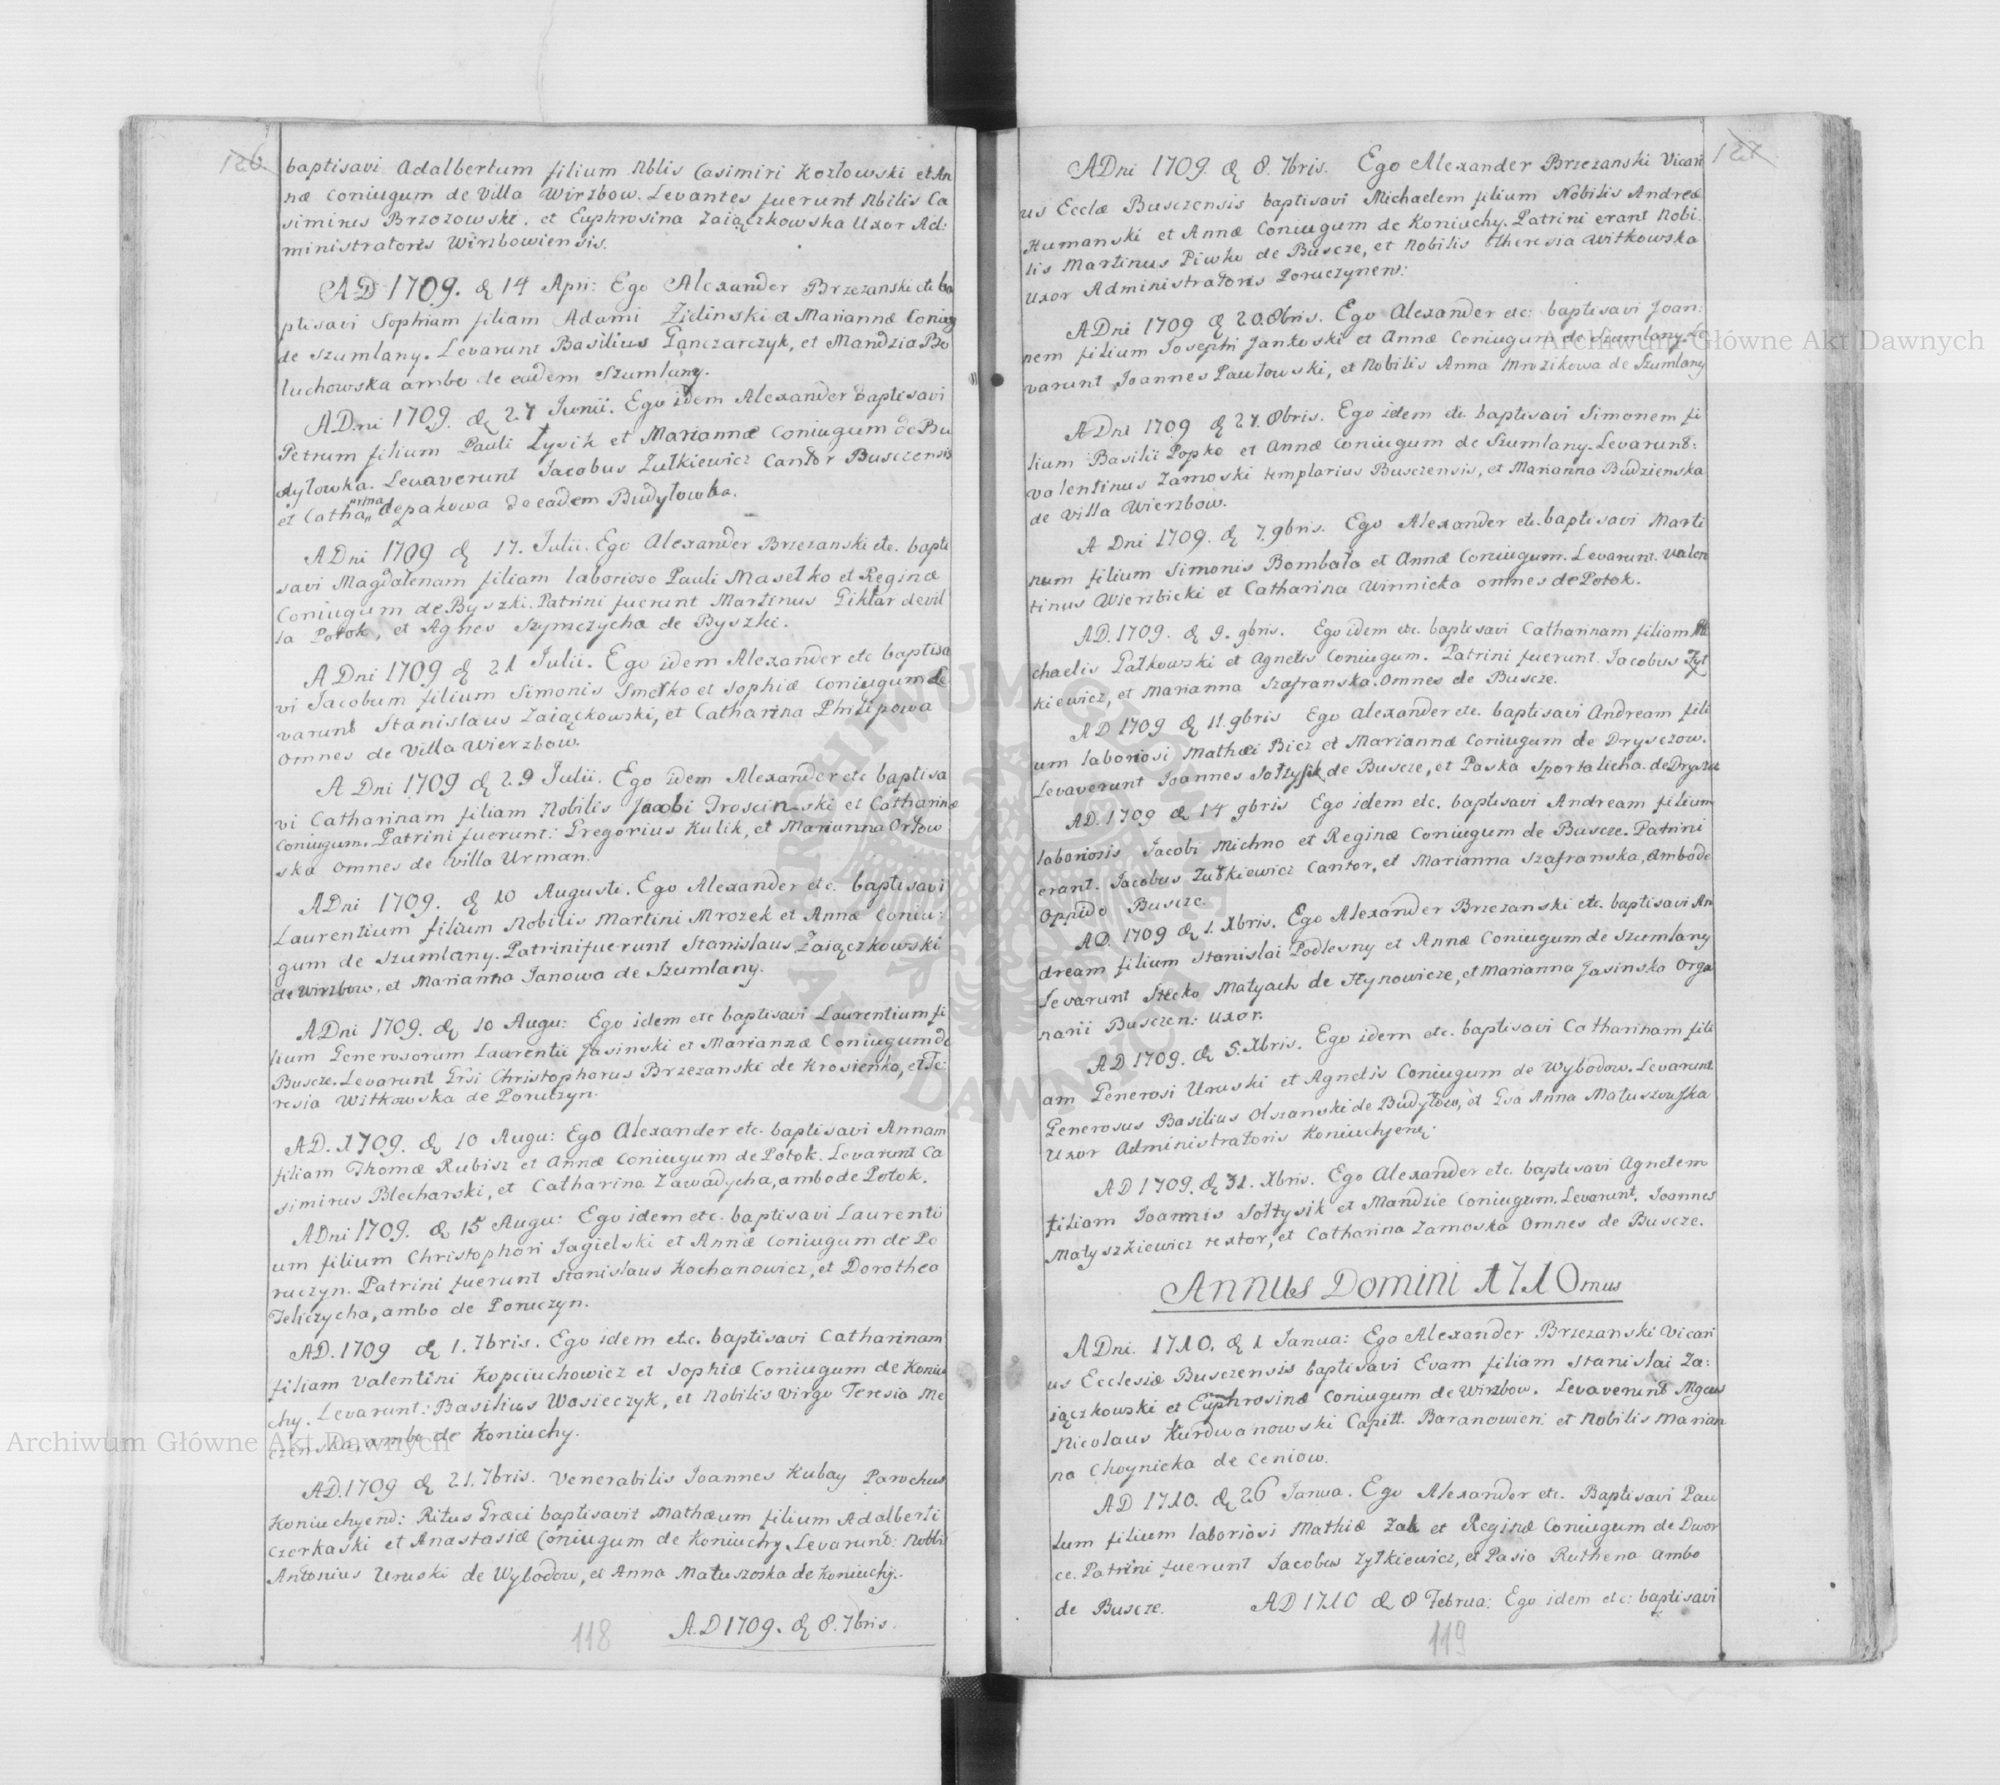 126
baptisavi Adalbertum filium Nblis Casimiri Kozłowski et An
næ Coniugum de Villa Wirzbow. Levantes fuerunt Nbilis Ca
simirus Brzozowski. et Euphrosina Zaiączkowska Uxor Ad:
ministratoris Wirzbowiensis.
AD 1709. d 14 Apri: Ego Alexander Brzezanski etc ba
ptisavi Sophiam filiam Adami Zielinski et Mariannæ Coniug
de Szumlany. Levarunt Basilius Ganczarczyk, et Mandzia Bo
luchowska ambo de eadem Szumlany.
ADni 1709. d 27 Iunii. Ego idem Alexander baptisavi
Petrum filium Pauli Łysik et Mariannæ Coniugum de Bu
dyłowka. Levaverunt Jacobus Zułkiewicz Cantor Busczensis
et Catharina depakowa de eadem Budyłowka.
ADni 1709 d 17. Iulii. Ego Alexander Brzezanski etc. bapti
savi Magdalenam filiam laborioso Pauli Masełko et Reginæ
Coniugum de Byszki. Patrini fuerunt Martinus Giktar de vil
la Potok, et Agnes Szymczycha de Byszki.
A Dni 1709 d 21 Iulii. Ego idem Alexander etc baptisa
vi Jacobum filium Simonis Smetko et Sophiæ Coniugum Le
varunt Stanislaus Zaiąckowski, et Catharina Philipowa
Omnes de Villa Wierzbow.
A Dni 1709 d 29 Julii. Ego idem Alexander etc baptisa
vi Catharinam filiam Nobilis Jacobi Troscinski et Catharinæ
Coniugum. Patrini fuerunt: Gregorius Kulik, et Marianna Orłow
ska Omnes de villa Urman.
ADni 1709. d 10 Augusti. Ego Alexander etc. baptisavi
Laurentium filium Nobilis Martini Mrozek et Annæ Coniu:
gum de Szumlany. Patrini fuerunt Stanislaus Zaiączkowski
de Wirzbow, et Marianna Janowa de Szumlany.
ADni 1709. d 10 Augu: Ego idem etc baptisavi Laurentium fi
lium Generosorum Laurentii Jasinski et Mariannæ Coniugum de
Buscze. Levarunt Grsi Christophorus Brzezanski de Krosienko, et Te:
resia Witkowska de Poruczyn.
AD. 1709. d 10 Augu: Ego Alexander etc. baptisavi Annam
filiam Thomæ Rubisz et Annæ Coniugum de Potok. Levarunt Ca
simirus Blecharski, et Catharina Zawadycha, ambo de Potok.
ADni 1709. d 15 Augu: Ego idem etc. baptisavi Laurenti
um filium Christophori Jagielski et Annæ Coniugum de Po
ruczyn. Patrini fuerunt Stanislaus Kochanowicz, et Dorothea
Teliczycha, ambo de Poruczyn.
AD. 1709 d 1. 7bris. Ego idem etc. baptisavi Catharinam
filiam Valentini Kopciuchowicz et Sophiæ Coniugum de Koniu
chy. Levarunt: Basilius Wosieczyk, et Nobilis Virgo Teresia Me
ambo de Koniuchy.
AD. 1709 d 21. 7bris. Venerabilis Joannes Kubay Parochus
Koniuchyens: Ritus Græci baptisavit Mathæum filium Adalberti
Czerkaski et Anastasiæ Coniugum de Koniuchy. Levarunt: Nobli
Antonius Uruski de Wybodow, et Anna Matuszoska de Koniuchy.
AD 1709. d 8. 7bris.
118
127
ADni 1709. d 8. 7bris. Ego Alexander Brzezanski Vicari
us Ecclæ Busczensis baptisavi Michaelem filium Nobilis Andreæ
Humanski et Annæ Coniugum de Koniuchy. Patrini erant Nobi
lis Martinus Piwko de Buscze, et Nobilis Theresia Witkowska
Uxor Administratoris Poruczynen:
ADni 1709 d 20. 8bris. Ego Alexander etc: baptisavi Joan:
nem filium Iosephi Jankoski et Annæ Coniugum de Szumlany. Le
varunt Joannes Pawłowski, et Nobilis Anna Mrozikowa de Szumlany
A Dni 1709 d 27. 8bris. Ego idem etc. baptisavi Simonem fi
lium Basilii Popko et Annæ Coniugum de Szumlany. Levarunt:
Valentinus Zamoski templarius Busczensis, et Marianna Budzienska
de Villa Wierzbow.
A Dni 1709. d 7. 9bris. Ego Alexander etc. baptisavi Marti
num filium Simonis Bombała et Annæ Coniugum. Levarunt. Valen
tinus Wierzbicki et Catharina Winnicka omnes de Potok.
AD. 1709. d 9. 9bris. Ego idem etc. baptisavi Catharinam filiam Mi
chaelis Gałkowski et Agnetis Coniugum. Patrini fuerunt. Jacobus Zył
kiewicz, et Marianna Szafranska. Omnes de Buscze.
AD 1709 d 11. 9bris Ego Alexander etc. baptisavi Andream fili
um laboriosi Mathæi Bicz et Mariannæ Coniugum de Drysczow.
Levaverunt Joannes Sołtysik de Buscze, et Paska Sportalicha. de Dryszcz
AD. 1709 d 14 9bris Ego idem etc. baptisavi Andream filium
laboriosis Jacobi Michno et Reginæ Coniugum de Buscze. Patrini
erant. Jacobus Zułkiewicz Cantor, et Marianna Szafranska, Ambo de
Oppido Buscze.
AD. 1709 d 1. Xbris. Ego Alexander Brzezanski etc. baptisavi An
dream filium Stanislai Podlesny et Annæ Coniugum de Szumlany
Levarunt Stecko Matyach de Hynowicze, et Marianna Jasinska Orga
narii Busczen: Uxor.
AD 1709. d 5. Xbris. Ego idem etc. baptisavi Catharinam fili
am Generosi Uruski et Agnetis Coniugum de Wybodow. Levarunt
Generosus Basilius Olszanski de Budyłow, et Gsa Anna Matuszowska
Uxor Administratoris Koniuchyens:
AD 1709. d 31. Xbris. Ego Alexander etc. baptisavi Agnetem
filiam Joannis Sołtysik et Mandzie Coniugum. Levarunt. Joannes
Matyszkiewicz rector, et Catharina Zamoska Omnes de Buscze.
Annus Domini 1710mus
ADni. 1710. d 1 Janua: Ego Alexander Brzezanski Vicari
us Ecclesiæ Busczensis baptisavi Evam filiam Stanislai Za:
iączkowski et Euphrosinæ Coniugum de Wirzbow. Levaverunt Mgcus
Nicolaus Kurdwanowski Capitt. Baranowien: et Nobilis Marian
na Choynicka de Ceniow.
AD 1710. d 26 Janua. Ego Alexander etc. Baptisavi Pau
lum filium laboriosi Mathiæ Zak et Reginæ Coniugum de Dwor
ce. Patrini fuerunt Jacobus Zyłkiewicz, et Pasia Ruthena Ambo
de Buscze. AD 1710 d 8 Februa: Ego idem etc: baptisavi
119
Archiwum Główne Akt Dawnych
Archiwum Główne Akt Dawnych
ARCHIWUM GŁÓWNE AKT DAWNYCH